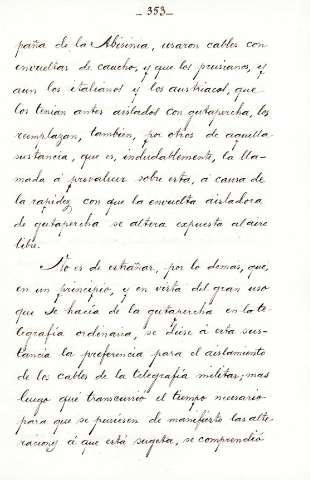 - 353 -
paña de la Abisinia, usaron cables con
envueltas de caucho, y que los prusianos, y
aun los italianos y los austriacos, que
los tenian antes aislados con gutapercha, los
reemplazan, tambien, por otros de aquella
sustancia, que es, indudablemente, la lla-
mada á prevalecer sobre esta, á causa de
la rapidez con que la envuelta aisladora
de gutapercha se altera expuesta al aire
libre.
No es de extrañar, por lo demas, que,
en un principio, y en vista del gran uso
que se hacia de la gutapercha en la te-
legrafía ordinaria, se diese á esta sus-
tancia la preferencia para el aislamiento
de los cables de la telegrafía militar; mas
luego que transcurrió el tiempo necesario
para que se pusiesen de manifiesto las alte-
raciones á que está sugeta, se comprendió